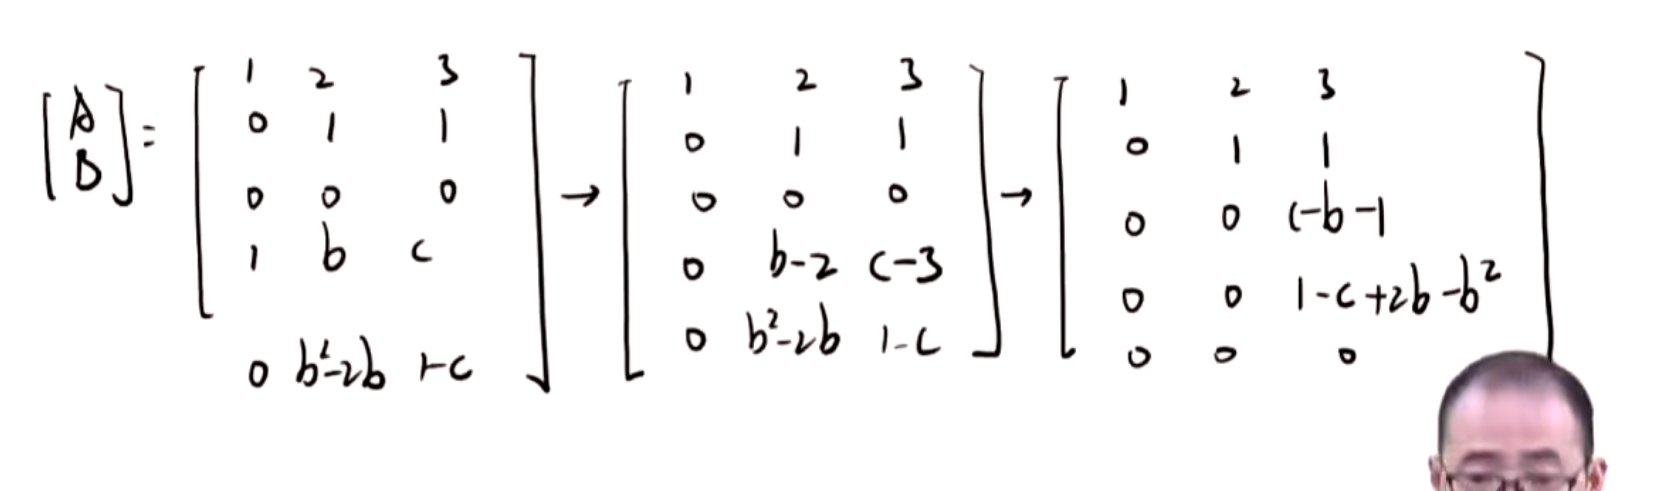 [A B] = [1 2 3; 0 1 1; 0 0 0; 1 b c; 0 b²-2b 1-c] → [1 2 3; 0 1 1; 0 0 0; 0 b-2 c-3; 0 b²-2b 1-c] → [1 2 3; 0 1 1; 0 0 c-b-1; 0 0 1-c+2b-b²; 0 0 0]